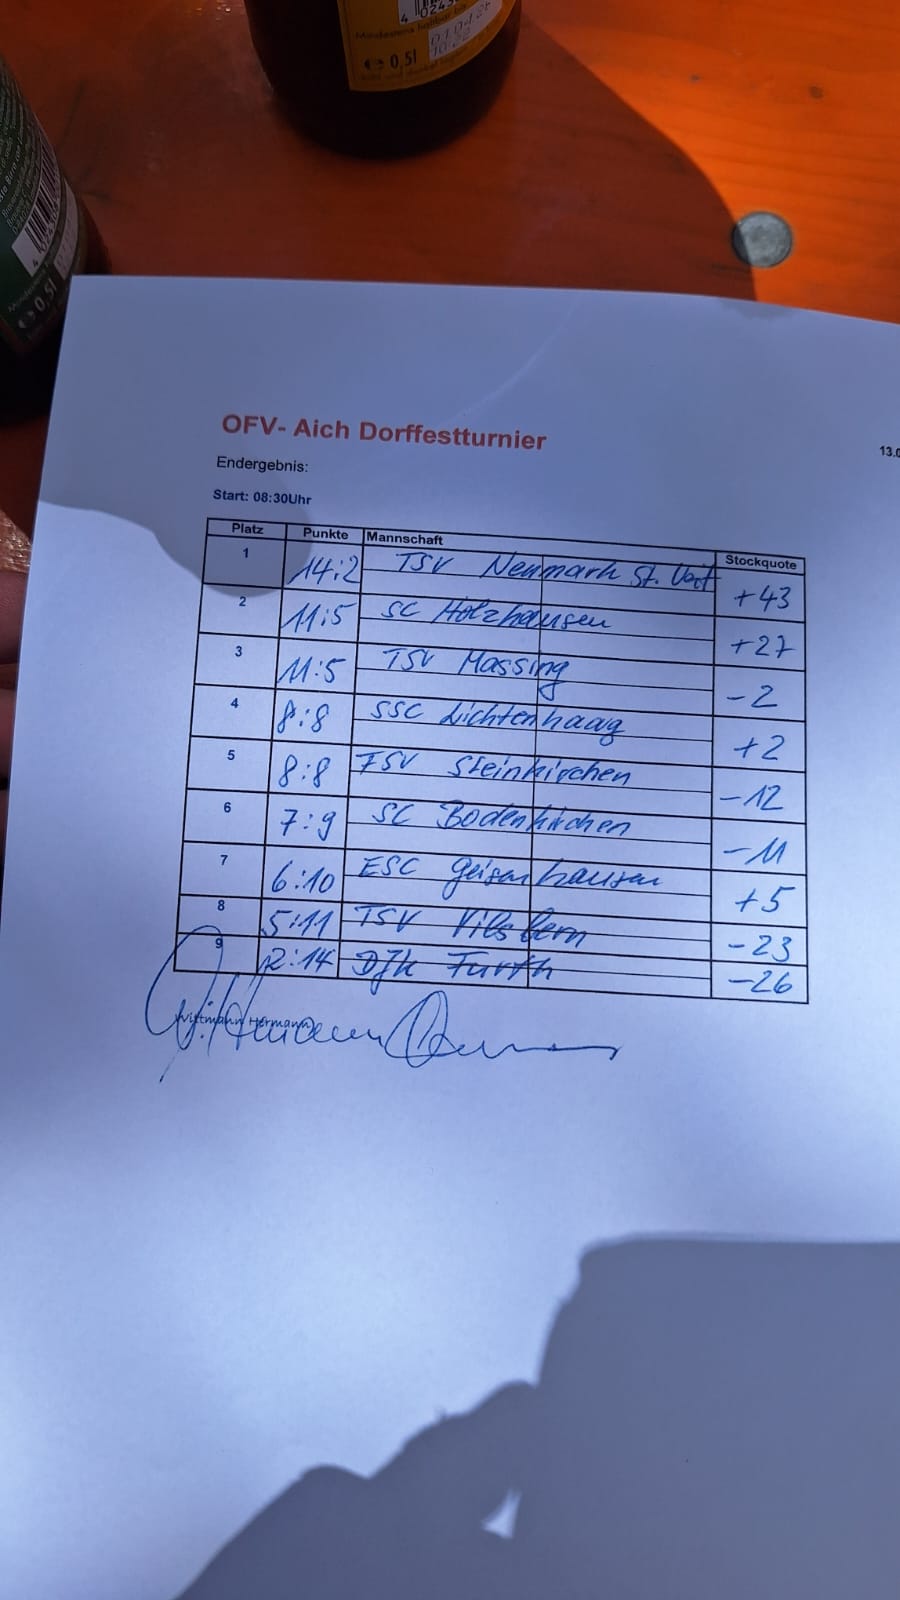 Mindestens haltbar bis
01.04.26
10:32
0,5l
0,5l
OFV- Aich Dorffestturnier
13.0
Endergebnis:
Start: 08:30Uhr
Platz Punkte Mannschaft Stockquote
1 14:2 TSV Neumark St. Veit +43
2 11:5 SC Holzhausen +27
3 11:5 TSV Massing -2
4 8:8 SSC Lichtenhaag +2
5 8:8 FSV Steinkirchen -12
6 7:9 SC Bodenkirchen -11
7 6:10 ESC Geisenhausen +5
8 5:11 TSV Vilsbern -23
9 2:14 DJK Furth -26
Wittmann Hermann